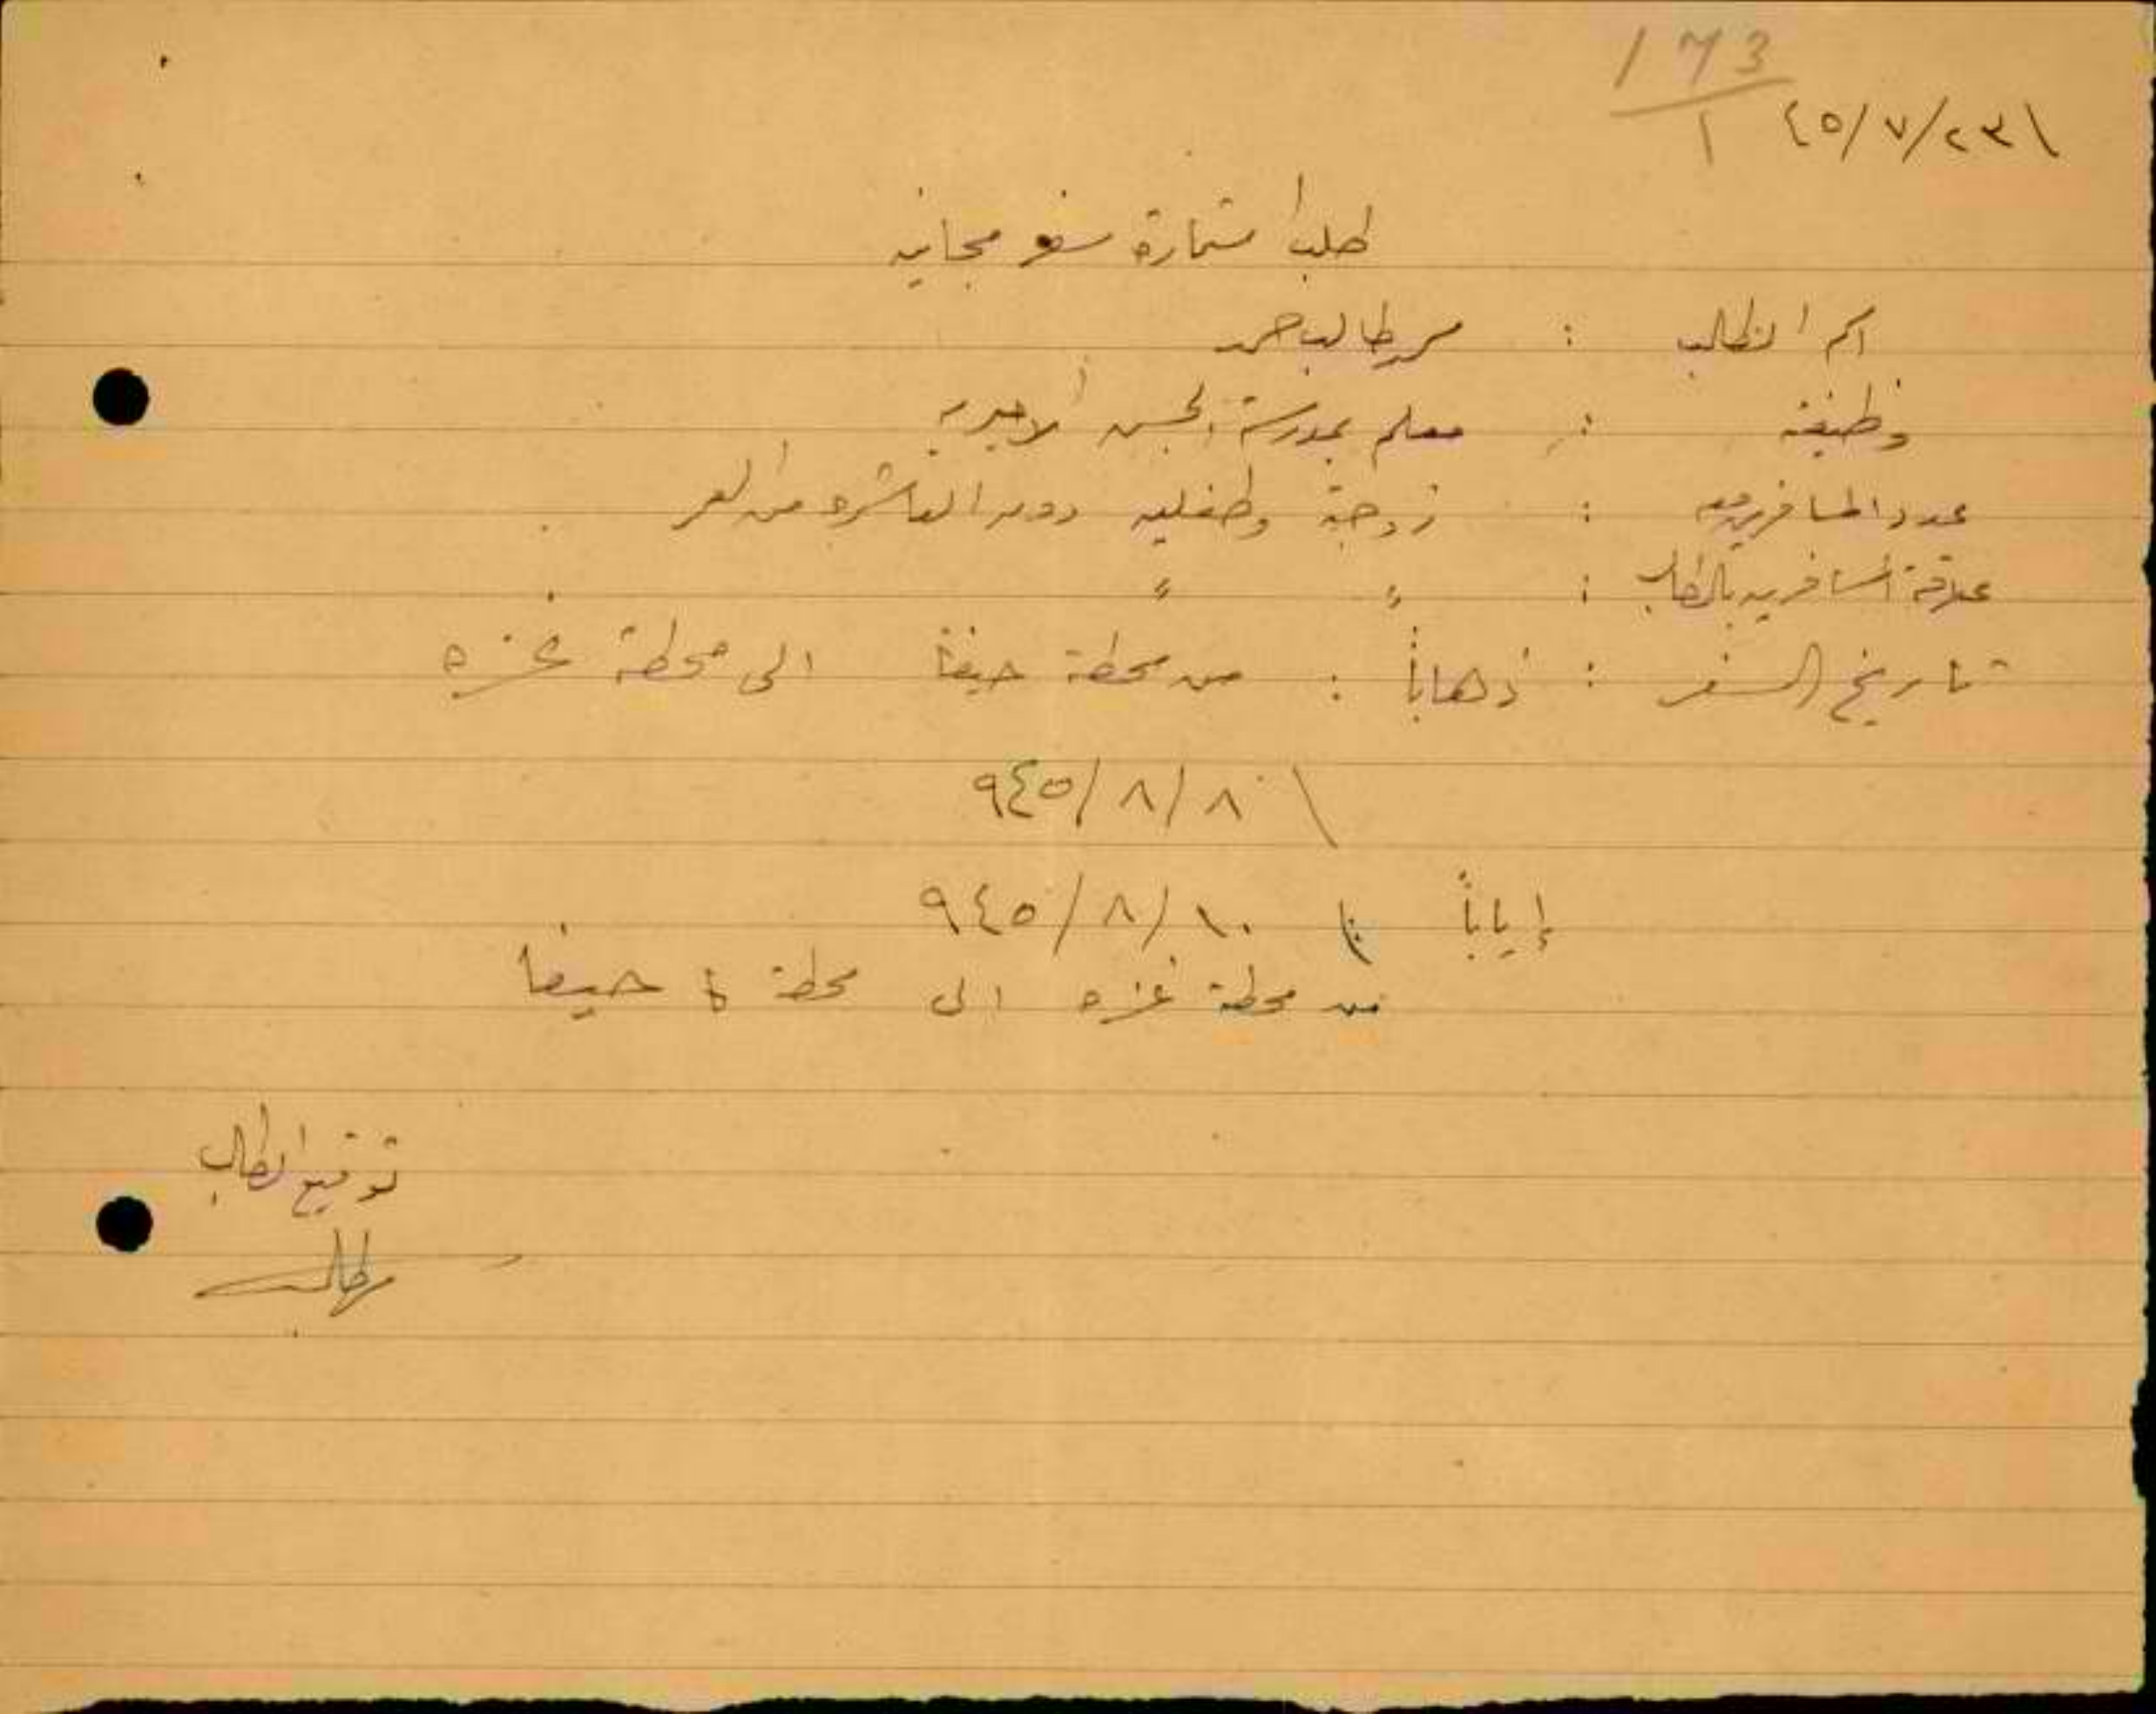 173
1
٤٥/٧/٢٣
طلب استمارة سفر مجانيه
اسم الطالب : طالب
وظيفته : معلم بمدرسة
عدد المسافرين معه : زوجة وطفلين دون العاشره من العمر
علاقة المسافرين بالطالب : " "
تاريخ السفر : ذهاباً : من محطة حيفا الى محطة غزه
٩٤٥/٨/٨
إياباً ٩٤٥/٨/١٠
من محطة غزه الى محطة حيفا
توقيع الطالب